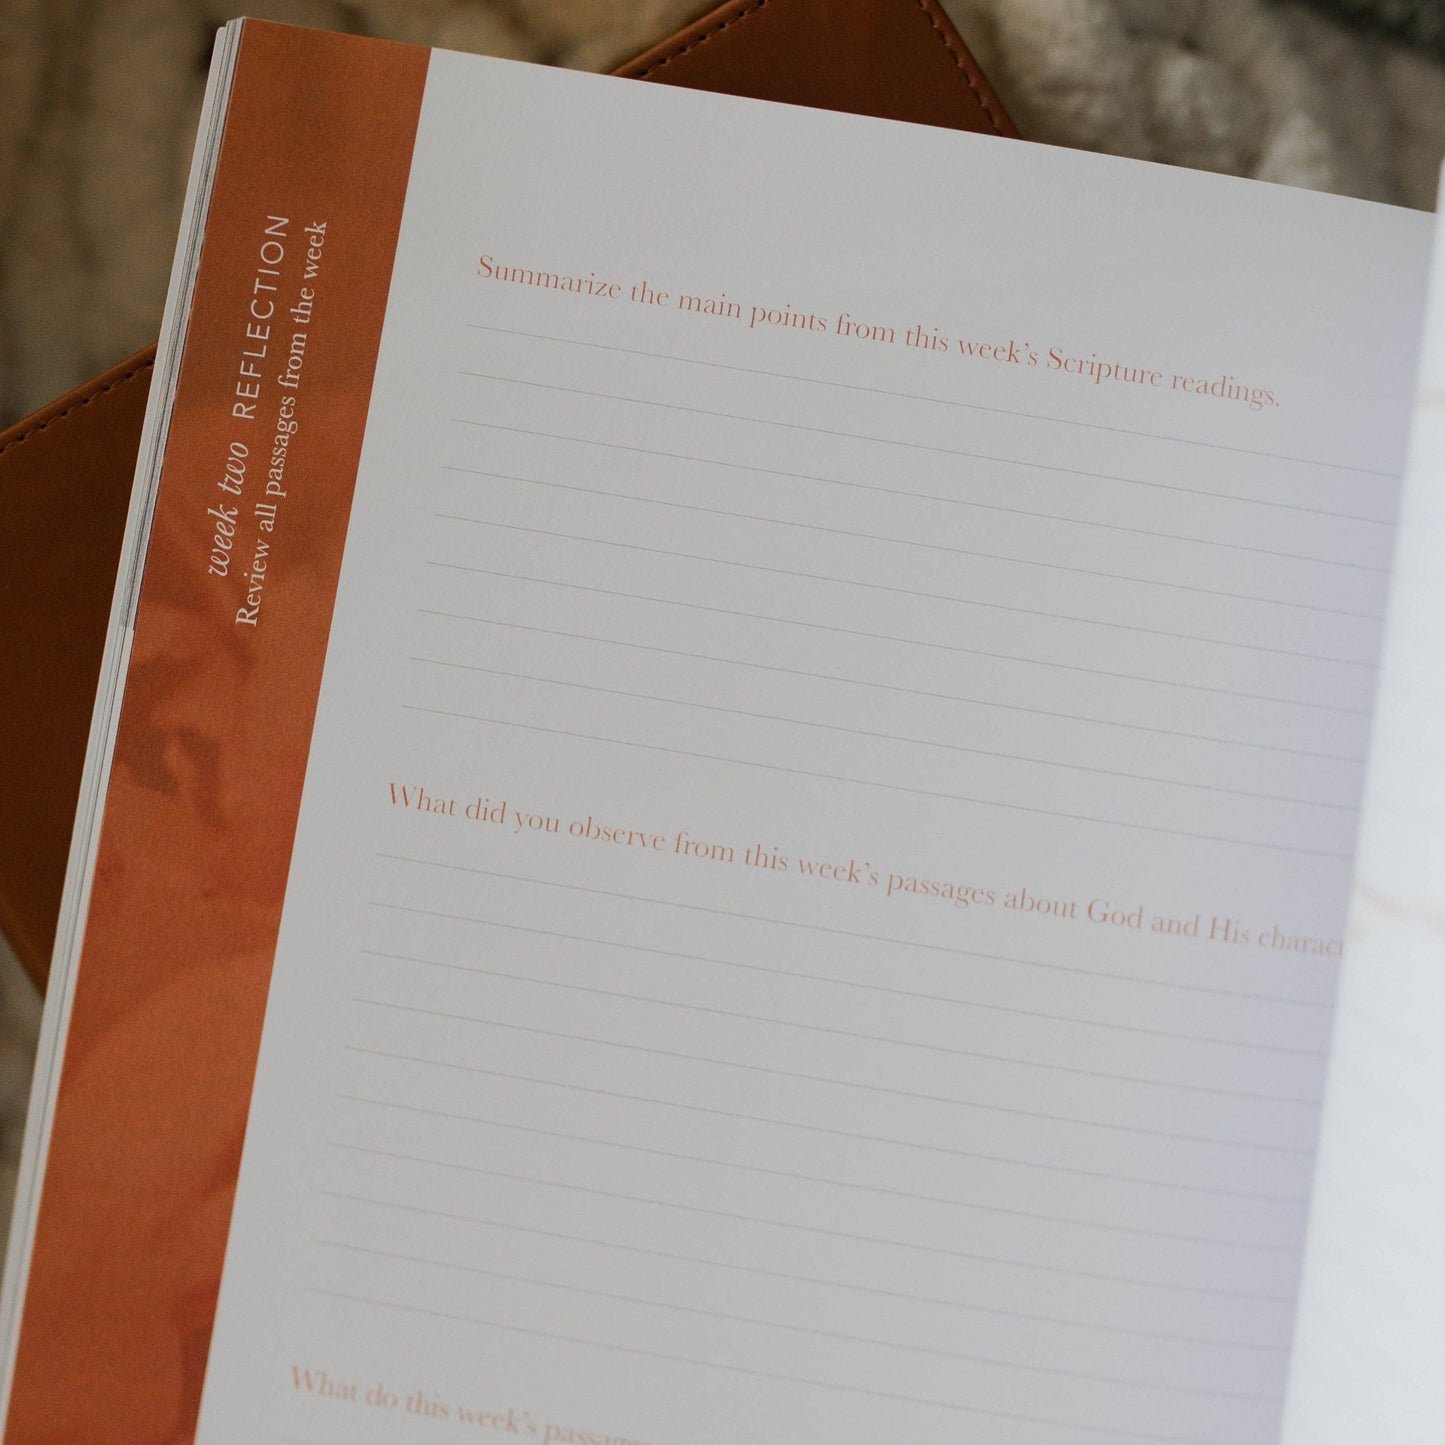 week two REFLECTION
Review all passages from the week
Summarize the main points from this week's Scripture readings.
What did you observe from this week's passages about God and His charact
What do this week's passages